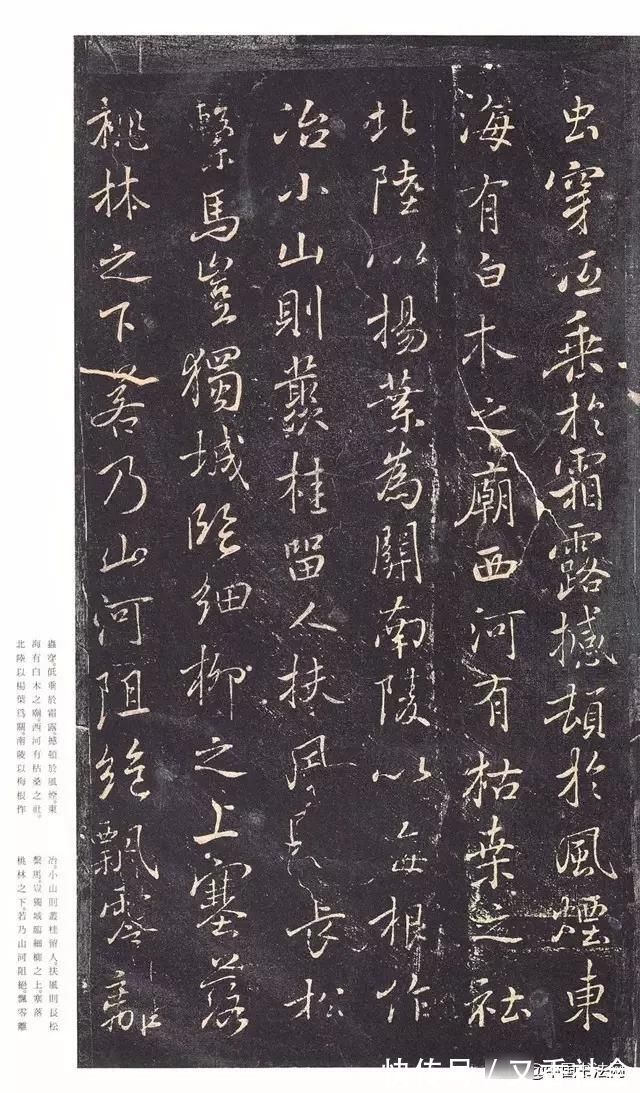 虫穿低垂於霜露撼頓於風煙東
海有白木之廟西河有枯桒之社
北陸以揚葉為關南陵以每根作
冶小山則叢桂留人扶風則長松
繫馬豈獨城臨細柳之上塞落
桃林之下若乃山河阻絶飄零離
蟲穿。低垂於霜露。撼頓於風煙。東
海有白木之廟。西河有枯桑之社。
北陸以楊葉爲關。南陵以梅根作
冶。小山則叢桂留人。扶風則長松
繫馬。豈獨城臨細柳之上。塞落
桃林之下。若乃山河阻絶。飄零離
快传号 /
@中国书法网